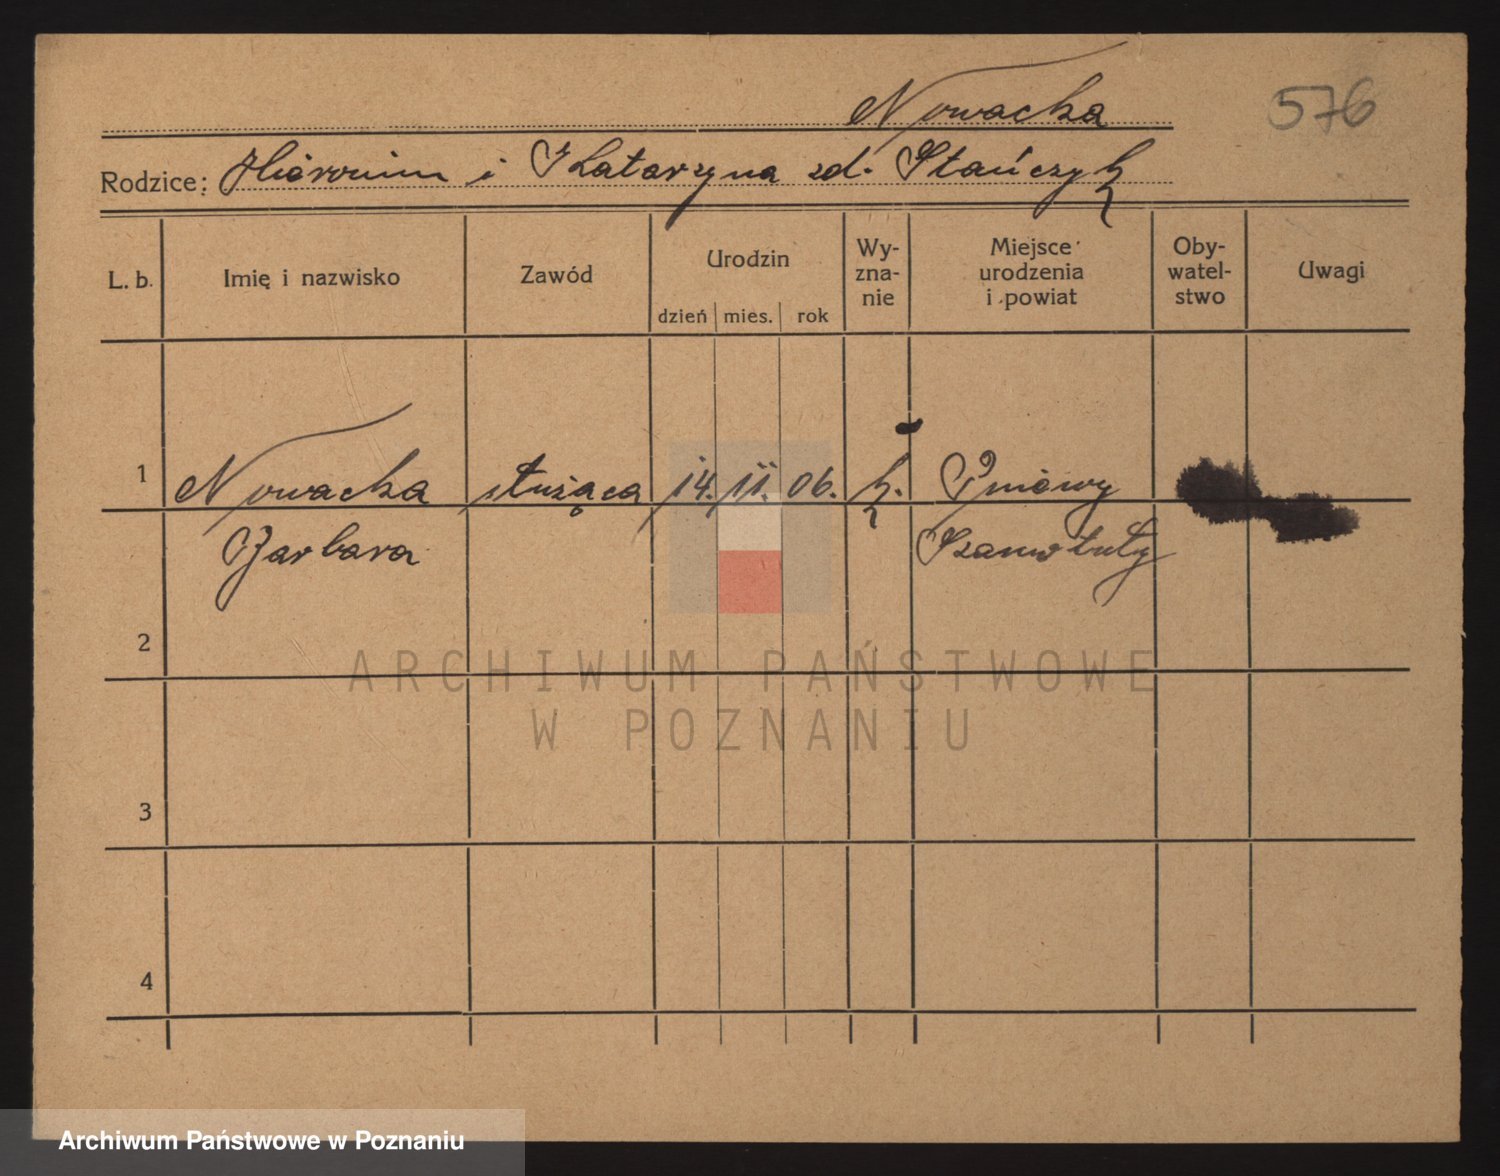 Nowacka
576
Rodzice: Hieronim i Katarzyna zd. Stańczyk
L. b. Imię i nazwisko Zawód Urodzin dzień mies. rok Wy-zna-nie Miejsce urodzenia i powiat Oby-watel-stwo Uwagi
1 Nowacka służąca 14. 11. 06. k. Pniewy
Barbara Szamotuły
2
3
4
ARCHIWUM PAŃSTWOWE
W POZNANIU
Archiwum Państwowe w Poznaniu